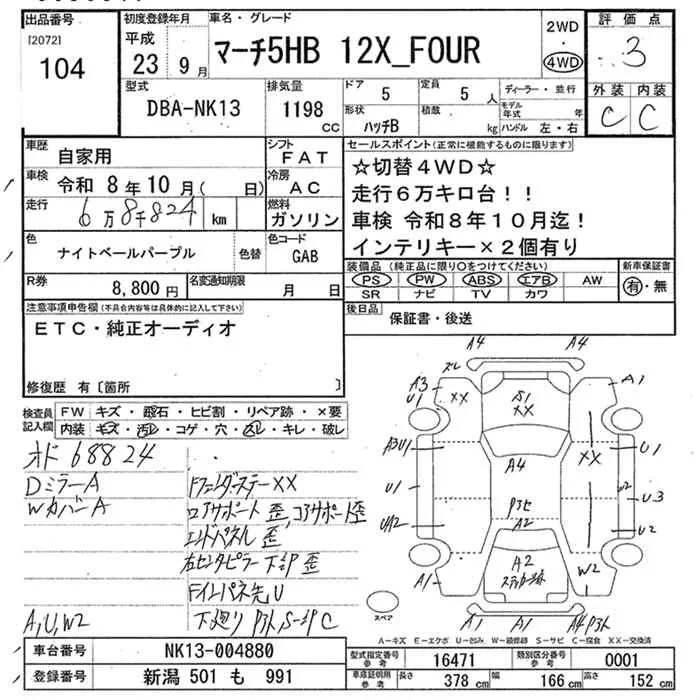 出品番号
[2072]
104
初度登録年月
平成
23 9月
車名・グレード
マーチ5HB 12X_FOUR
2WD
・
4WD
評価点
3
型式
DBA-NK13
排気量
1198
CC
ドア
5
定員
5
人
形状
ハッチB
積載
kg
ディーラー・並行
モデル年式
年
ハンドル 左・右
外装 内装
C C
車歴
自家用
シフト
FAT
車検
令和 8年10月( 日)
冷房
AC
走行
6万8千824 km
燃料
ガソリン
色
ナイトベールパープル
色替
色コード
GAB
R券
8,800円
名変通知期限
月 日
セールスポイント(正常に機能するものに限ります)
☆切替4WD☆
走行6万キロ台!!
車検 令和8年10月迄!
インテリキー×2個有り
装備品(純正品に限り○をつけてください)
PS PW ABS エアB AW
SR ナビ TV カワ
新車保証書
有・無
後日品
保証書・後送
注意事項申告欄(不具合内容等は具体的に記入して下さい)
ETC・純正オーディオ
修復歴 有〔箇所 〕
検査員記入欄
FW キズ・飛石・ヒビ割・リペア跡・×要
内装 キズ・汚レ・コゲ・穴・スレ・キレ・破レ
オド 68824
DミラーA
WカバーA
FフェンダステーXX
ロアサポート歪,コアサポート歪
エンドパネル 歪
右センタピラー下部歪
Fインパネ先U
A,U,W2
A4
A4
A3
U1
XX
S1
XX
A1
A3U1
A4
XX
U1
U1
W2
U3
UA2
A2
U2
A2
W2
A1
A1
A1
スペア
A-キズ E-エクボ U-凹み W-補修跡 S-サビ C-腐食 XX-交換済
車台番号
NK13-004880
登録番号
新潟 501 も 991
型式指定番号
参考
16471
類別区分番号
参考
0001
車庫証明用
参考
長さ
378 cm
幅
166 cm
高さ
152 cm